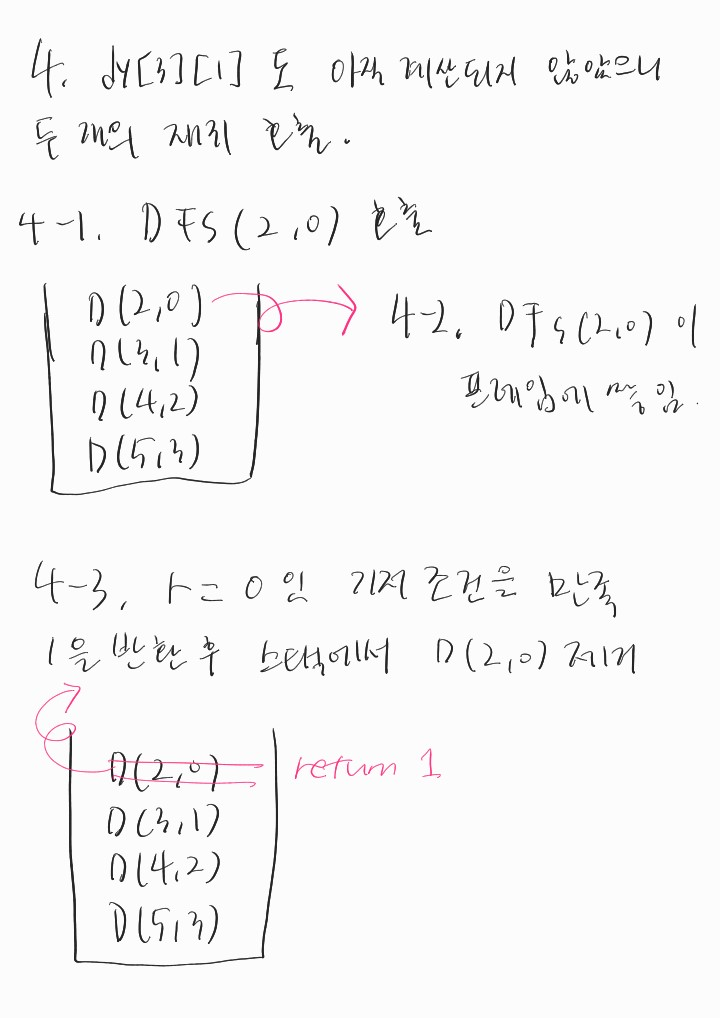 4. dy[3][1] 도 아직 계산되지 않았으니
두 개의 재귀 호출.
4-1. DFS(2,0) 호출
D(2,0)
D(3,1)
D(4,2)
D(5,3)
4-2. DFS(2,0) 이
프레임에 쌓임.
4-3. r=0인 기저 조건을 만족
1을 반환 후 스택에서 D(2,0) 제거
D(2,0) return 1
D(3,1)
D(4,2)
D(5,3)